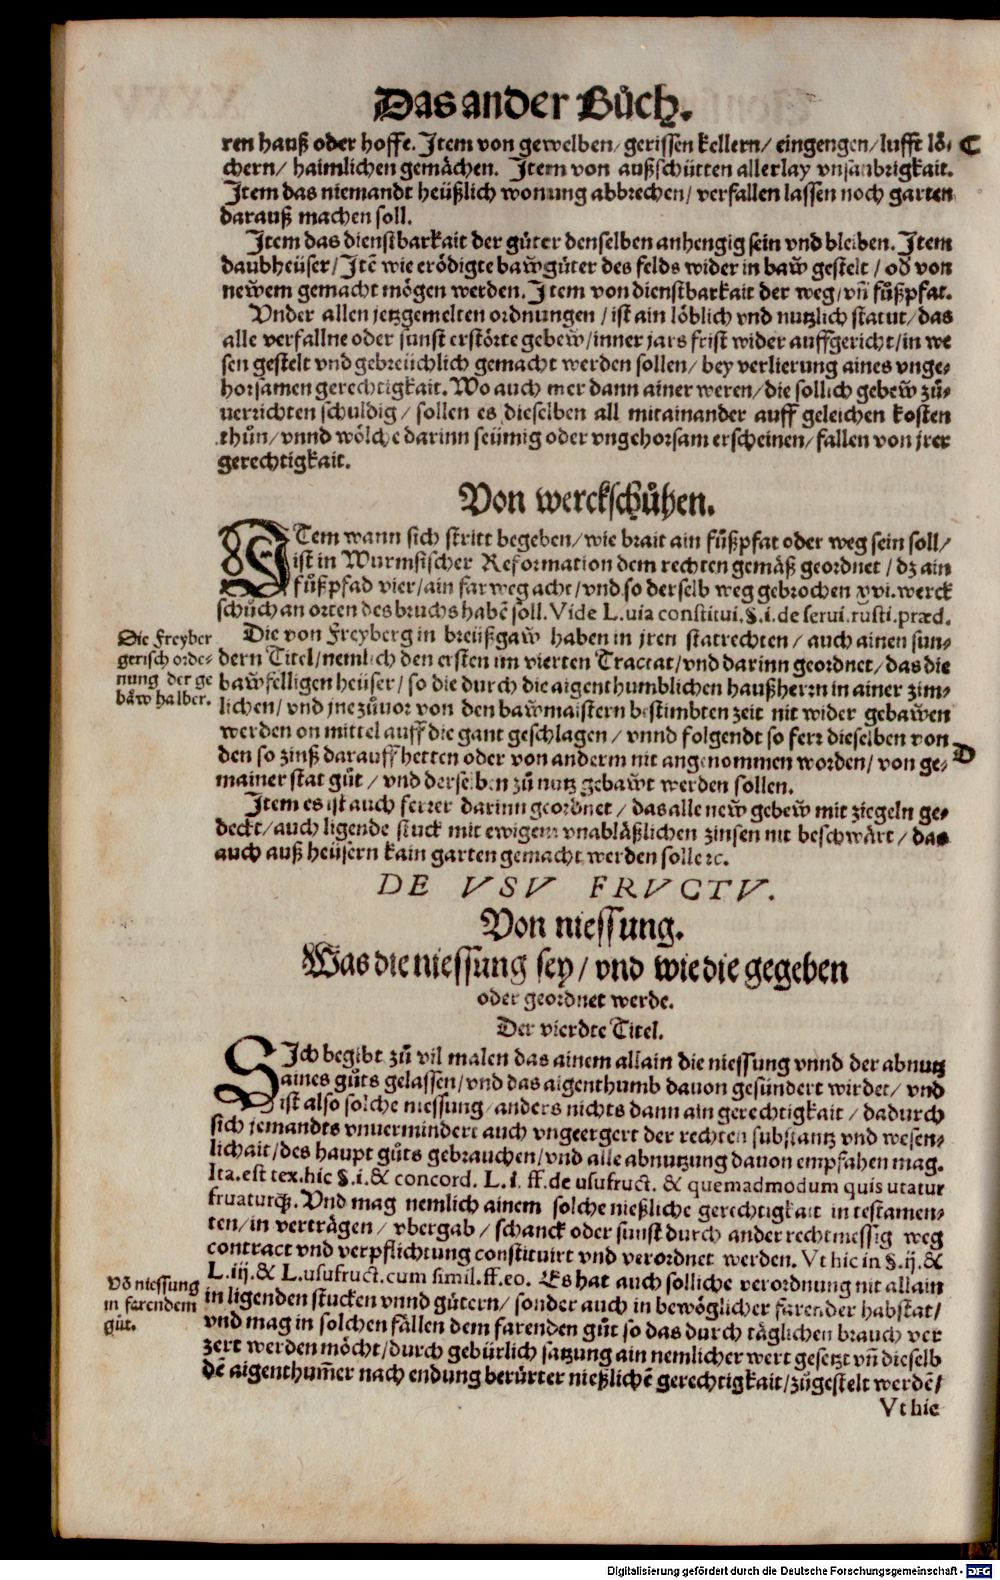 Das ander Bůch.
ren hauß oder hoffe. Item von gewelben/ gerissen kellern/ eingengen/ lufft lö-
C
chern/ haimlichen gemächen. Item von außschütten allerlay vnsaubrigkait.
Item das niemandt heüßlich wonung abbrechen/ verfallen lassen noch garten
darauß machen soll.
Item das dienstbarkait der güter denselben anhengig sein vnd bleiben. Item
daubheüser/ Itē wie erödigte baw̃güter des felds wider in baw̃ gestelt / od̄ von
new̃em gemacht mögen werden. Item von dienstbarkait der weg/ vn̄ fůßpfat.
Vnder allen jetzgemelten ordnungen / ist ain löblich vnd nutzlich statut/ das
alle verfallne oder sunst erstörte gebew̃/ inner jars frist wider auffgericht/ in we
sen gestelt vnd gebreüchlich gemacht werden sollen/ bey verlierung aines vnge-
horsamen gerechtigkait. Wo auch mer dann ainer weren/ die sollich gebew̃ zů-
uerrichten schuldig / sollen es dieselben all mitainander auff geleichen kosten
thůn/ vnnd wölche darinn seümig oder vngehorsam erscheinen/ fallen von jrer
gerechtigkait.
Von werckschůhen.
ITem wann sich stritt begeben/ wie brait ain fůßpfat oder weg sein soll/
ist in Wurmsischer Reformation dem rechten gemäß geordnet / dz ain
fůßpfad vier/ ain farweg acht/ vnd so derselb weg gebrochen xvi. werck
schůch an orten des bruchs habē soll. Vide L. via constitui. §. i. de serui. rusti. præd.
Die Freyber
gerisch orde-
nung der ge
bäw halber.
Die von Freyberg in breüßgaw̃ haben in jren statrechten / auch ainen sun-
dern Titel/ nemlich den ersten im vierten Tractat/ vnd darinn geordnet/ das die
baw̃felligen heüser/ so die durch die aigenthumblichen haußherrn in ainer zim-
lichen/ vnd jne zůuor von den baw̃maistern bestimbten zeit nit wider gebaw̃en
werden on mittel auff die gant geschlagen / vnnd folgendt so ferr dieselben von
D
den so zinß darauff hetten oder von anderm nit angenommen worden/ von ge-
mainer stat gůt / vnd derselben zů nutz gebaw̃t werden sollen.
Item es ist auch ferrer darinn geordnet / das alle new̃ gebew̃ mit ziegeln ge-
deckt/ auch ligende stuck mit ewigem vnabläßlichen zinsen nit beschwärt / das
auch auß heüsern kain garten gemacht werden soll ꝛc.
DE VSV FRVCTV.
Von niessung.
Was die niessung sey/ vnd wie die gegeben
oder geordnet werde.
Der vierdte Titel.
SIch begibt zů vil malen das ainem allain die niessung vnnd der abnutz
aines gůts gelassen/ vnd das aigenthumb dauon gesündert wirdet/ vnd
ist also solche niessung/ anders nichts dann ain gerechtigkait / dadurch
sich jemandts vnuermindert auch vngeergert der rechten substantz vnd wesen-
lichait/ des haupt gůts gebrauchen/ vnd alle abnutzung dauon empfahen mag.
Ita. est tex. hic §. i. & concord. L. i. ff. de usufruct. & quemadmodum quis utatur
fruaturq́;. Vnd mag nemlich ainem solche nießliche gerechtigkait in testamen-
ten/ in verträgen / vbergab / schanck oder sunst durch ander rechtmessig weg
contract vnd verpflichtung constituirt vnd verordnet werden. Vt hic in §. ij. &
L. iij. & L. usufruct. cum simil. ff. eo. Es hat auch solliche verordnung nit allain
Vō niessung
in farendem
gůt.
in ligenden stucken vnnd gütern/ sonder auch in bewöglicher farender habstat/
vnd mag in solchen fällen dem farenden gůt so das durch täglichen brauch ver
zert werden möcht/ durch gebürlich satzung ain nemlicher wert gesetzt vn̄ dieselb
dē aigenthum̄er nach endung berürter nießlichē gerechtigkait/ zůgestelt werdē/
Vt hic
Digitalisierung gefördert durch die Deutsche Forschungsgemeinschaft - DFG